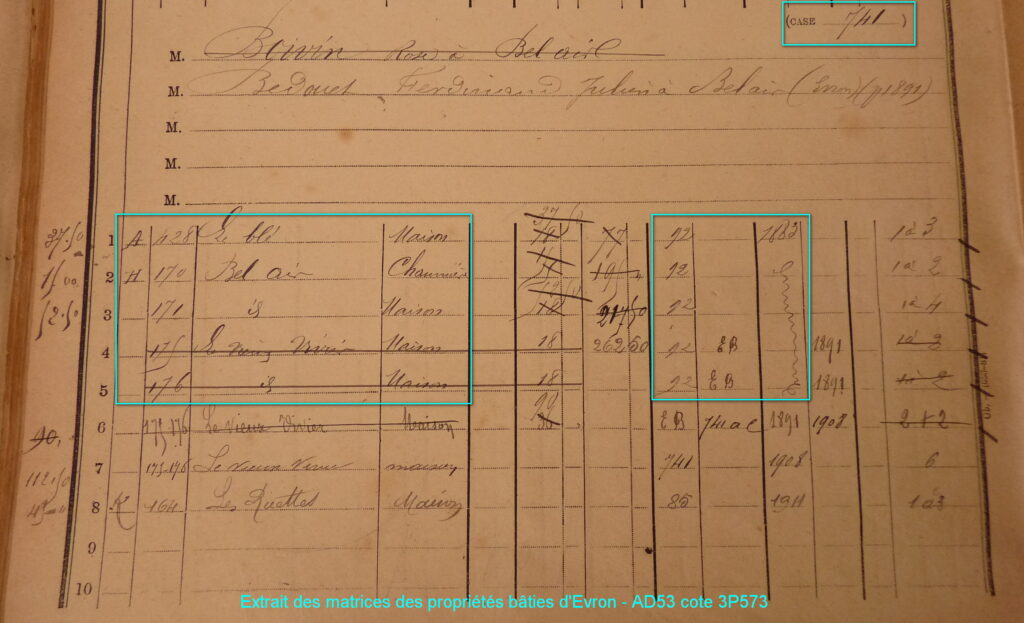 (CASE 741 )
M. Boivin René à Bel air
M. Bedouet Ferdinand Julien à Bel air (Evron) (p1891)
M.
M.
M.
37.50 1 A 428 Le blé Maison 18 77 92 1882 1 à 3
15,00 2 H 170 Bel air Chaumière 19 92 1 à 2
52.50 3 171 id Maison 18 217 50 92 1 à 4
4 175 Le vieux Vivier Maison 18 262,50 92 EB 1891 1 à 2
5 176 id Maison 18 92 EB 1891 1 à 2
90, 6 175,176 Le vieux Vivier Maison EB 741 ac 1891 1908 2 & 2
112.50 7 175-176 Le vieux Vivier maison 741 1908 6
45 8 K 164 Les Ruettes Maison 85 1911 1 à 3
9
10
Extrait des matrices des propriétés bâties d'Evron - AD53 cote 3P573